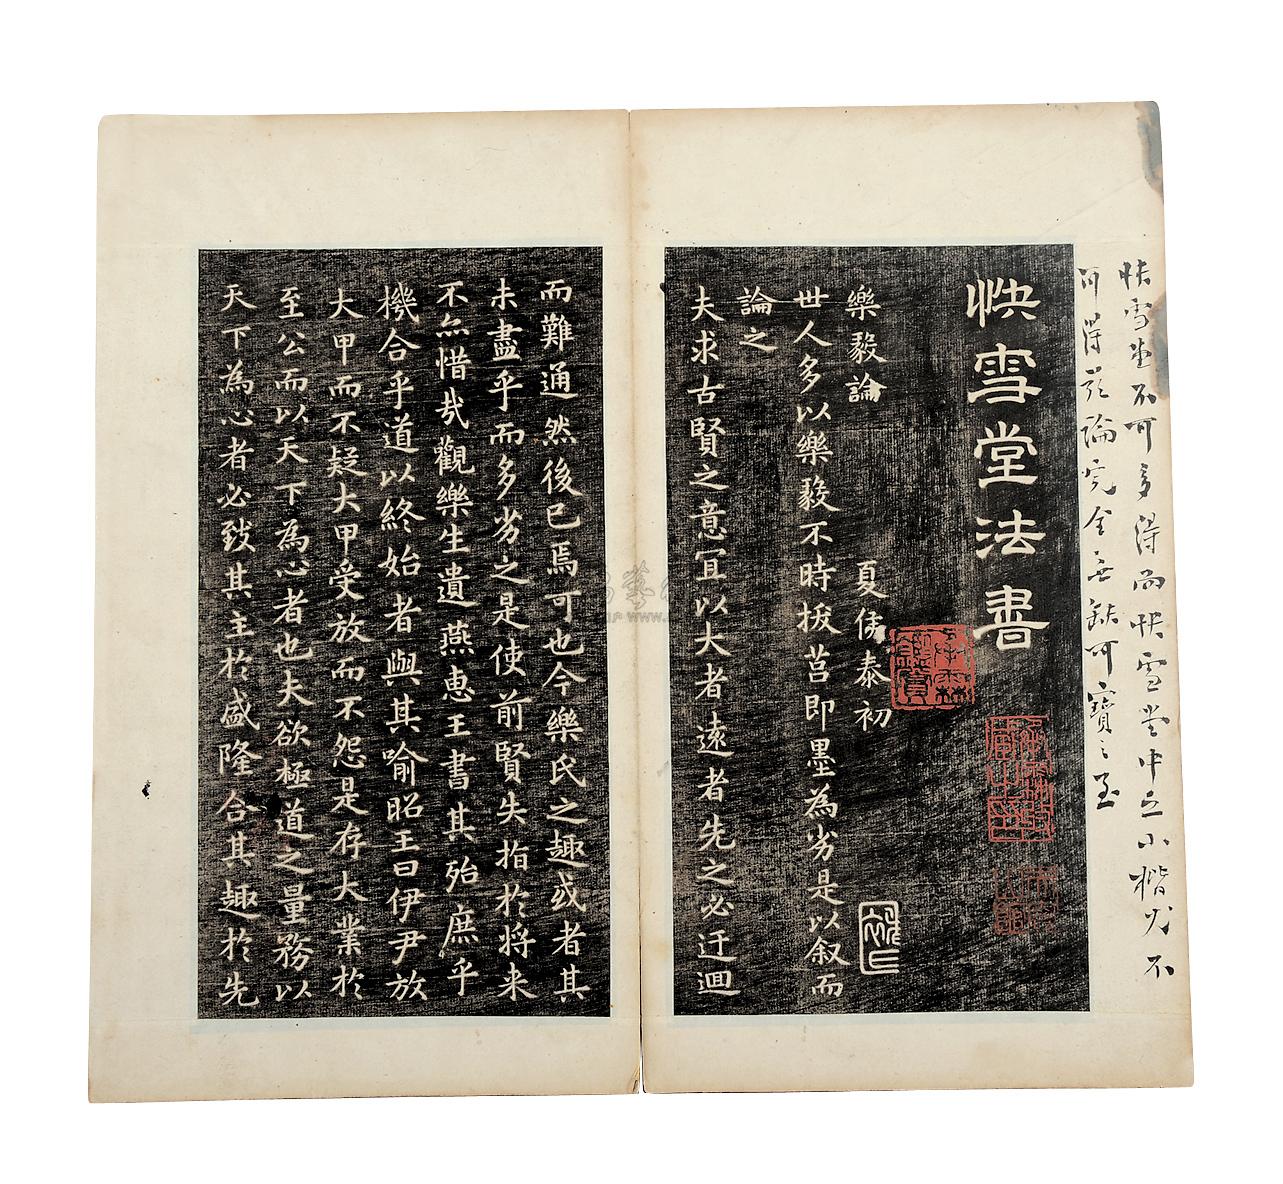 快雪堂不可多得而快雪堂中之小楷尤不
可得此論完全無缺可寶之至
快雪堂法書
樂毅論
夏侯泰初
世人多以樂毅不時拔莒即墨為劣是以叙而
論之
夫求古賢之意宜以大者遠者先之必迂迴
而難通然後已焉可也今樂氏之趣或者其
未盡乎而多劣之是使前賢失指於将来
不亦惜哉觀樂生遺燕惠王書其殆庶乎
機合乎道以終始者與其喻昭王曰伊尹放
大甲而不疑大甲受放而不怨是存大業於
至公而以天下為心者也夫欲極道之量務以
天下為心者必致其主於盛隆合其趣於先